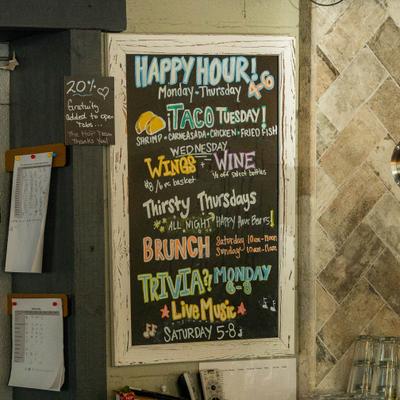 HAPPY HOUR!
Monday-Thursday 4-6
¡TACO TUESDAY!
SHRIMP • CARNE ASADA • CHICKEN • FRIED FISH
WEDNESDAY
WINGS + WINE
$8/6pc basket ½ off select bottles
Thirsty Thursdays
ALL NIGHT HAPPY HOUR
BRUNCH Saturday 10am-
Sunday 10am-
TRIVIA?? MONDAY
6-8
Live Music
SATURDAY 5-8
20%
Gratuity
added to open
tabs...
Thank You!